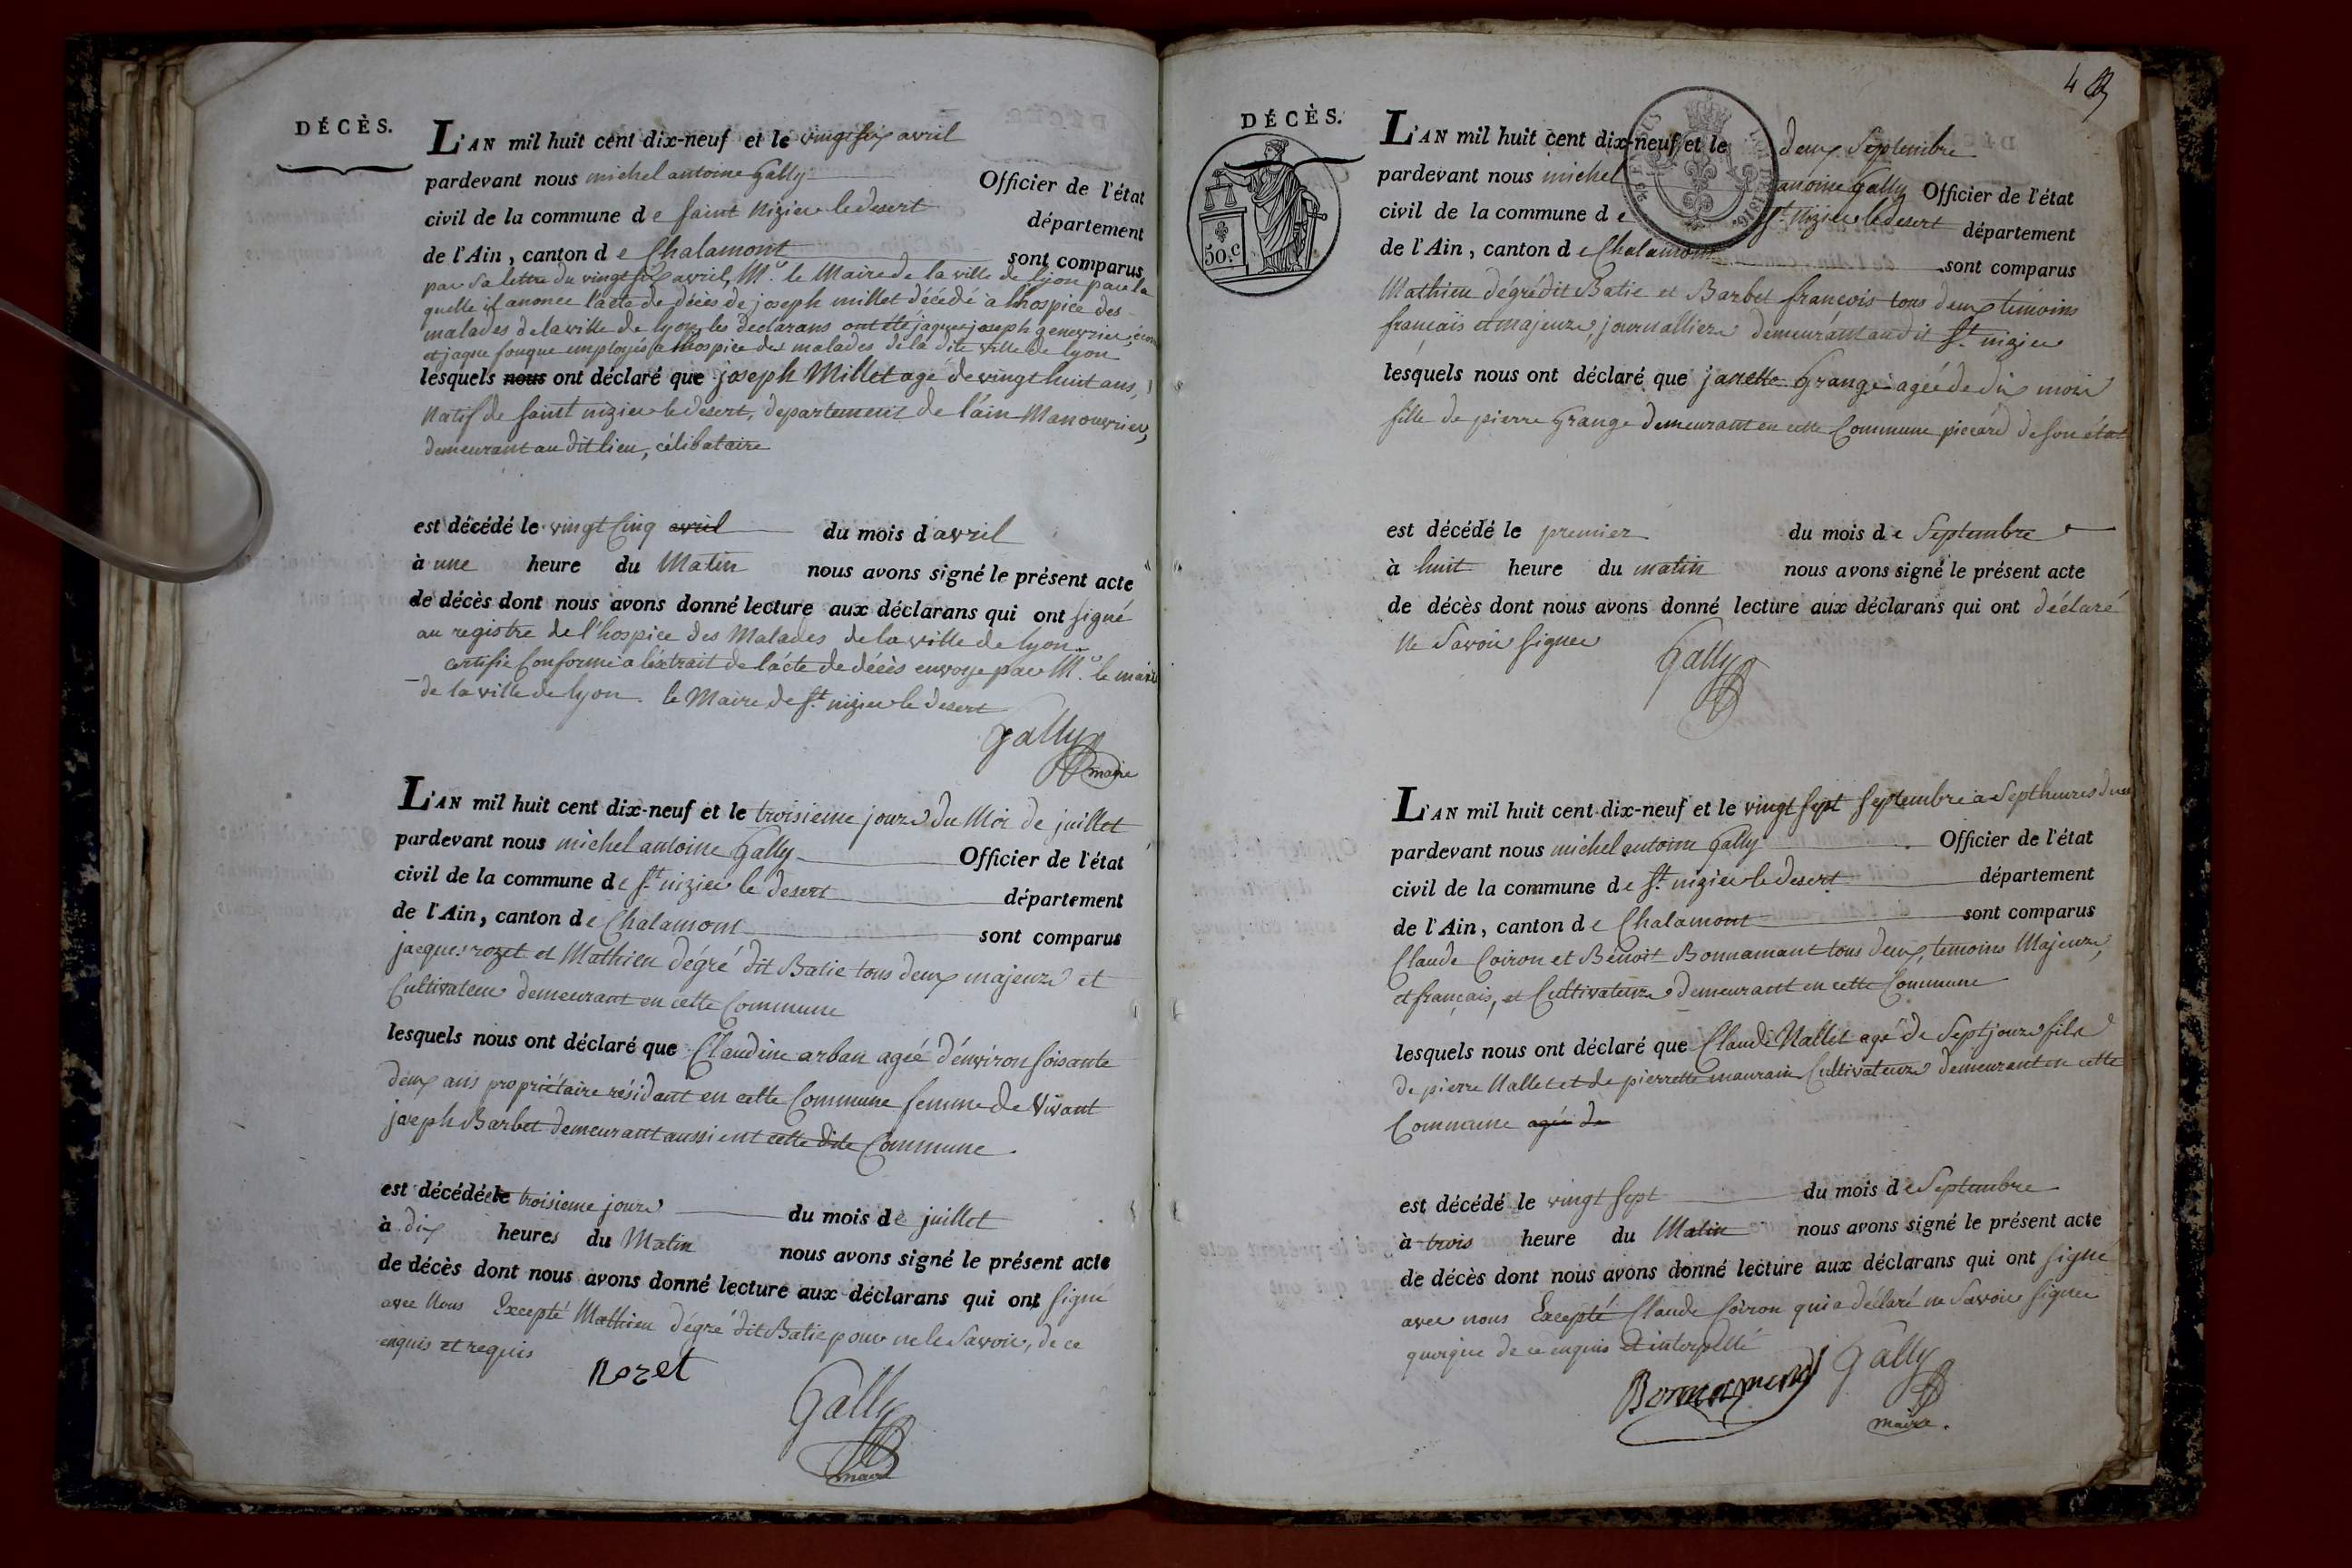 DÉCÈS.
L'AN mil huit cent dix-neuf et le vingt six avril
pardevant nous michel antoine Gally Officier de l'état
civil de la commune de saint nizier le desert département
de l'Ain, canton de Chalamont sont comparus
par sa lettre du vingt six avril, Mr. le Maire de la ville de lyon par la
quelle il anonce l'acte de décès de joseph millet décédé a lhospice des
malades de la ville de lyon, les declarans ont été jaques joseph genevrier,
et jaque fouque employés a lhospice des malades de la dite ville de lyon
lesquels nous ont déclaré que joseph Millet agé de vingt huit ans,
natif de saint nizier le desert, departement de l'ain Manouvrier,
demeurant au dit lieu, célibataire
est décédé le vingt cinq avril du mois d'avril
à une heure du Matin nous avons signé le présent acte
de décès dont nous avons donné lecture aux déclarans qui ont signé
au registre de l'hospice des Malades de la ville de lyon.
certifié Conforme a l'éxtrait de l'acte de décès envoyé par Mr. le maire
de la ville de lyon. le Maire de St. nizier le desert
Gally
maire
L'AN mil huit cent dix-neuf et le troisieme jour du Moi de juillet
pardevant nous michel antoine Gally Officier de l'état
civil de la commune de St. nizier le desert département
de l'Ain, canton de Chalamont sont comparus
jacques rozet et Mathieu dégré dit Batie tous deux majeurs et
Cultivateur demeurant en cette Commune
lesquels nous ont déclaré que Claudine arban agée d'énviron soisante
deux ans propriétaire résidant en cette Commune femme de Vivant
joseph Barbet demeurant aussi ent cette dite Commune
est décédée le troisieme jour du mois de juillet
à dix heures du Matin nous avons signé le présent acte
de décès dont nous avons donné lecture aux déclarans qui ont signé
avec Nous Excepté Mathieu dégré dit Batie pour ne le Savoir, de ce
enquis et requis
Rozet
Gally
maire
4
DÉCÈS.
50.C
L'AN mil huit cent dix-neuf et le deux Septembre
pardevant nous michel anoine Gally Officier de l'état
civil de la commune de St. nizier le desert département
de l'Ain, canton de Chalamont sont comparus
Mathieu dégré dit Batie et Barbet françois tous deux témoins
français et majeurs, journalliers demeurant audit St. nizier
lesquels nous ont déclaré que janette Grange agée de dix mois
fille de pierre Grange demeurant en cette Commune picard de son état
est décédé le premier du mois de Septembre
à huit heure du matin nous avons signé le présent acte
de décès dont nous avons donné lecture aux déclarans qui ont déclaré
ne Savoir signer
Gally
L'AN mil huit cent dix-neuf et le vingt sept Septembre a Sept heures du
pardevant nous michel antoine Gally Officier de l'état
civil de la commune de St. nizier le desert département
de l'Ain, canton de Chalamont sont comparus
Claude Coiron et Benoit Bonnamant tous deux, temoins Majeurs,
et français, et Cultivateurs demeurant en cette Commune
lesquels nous ont déclaré que Claude Nallet agé de Sept jours fils
de pierre Nallet et de pierrette maurain Cultivateurs demeurant en cette
Commune agée de
est décédé le vingt sept du mois de Septembre
à trois heure du Matin nous avons signé le présent acte
de décès dont nous avons donné lecture aux déclarans qui ont signé
avec nous Excepté Claude Coiron qui a déclaré ne Savoir signer
quoique de ce enquis et interpellé
Bonnamend
Gally
maire.